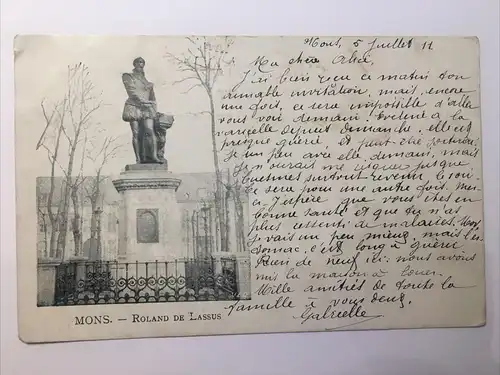 Mons, 5 Juillet 11
Ma chère Alice,
J'ai bien reçu ce matin ton
aimable invitation, mais, encore
une fois, ce sera impossible d'aller
vous voir demain. a la
varicelle depuis dimanche, elle est
presque guérie, et peut-être
un peu avec elle, demain, mais
je n'oserais me risquer jusque
surtout revenir le soir
ce sera pour une autre fois. Mer-
ci. J'espère que vous êtes en
bonne santé et que tu n'as
plus ressenti de malaises. Moi
je vais un peu mieux mais l'es-
tomac, c'est long à guérir
Rien de neuf ici: nous avons
mis la maison à louer.
Mille amitiés de toute la
famille à vous deux.
Gabrielle
MONS. — ROLAND DE LASSUS